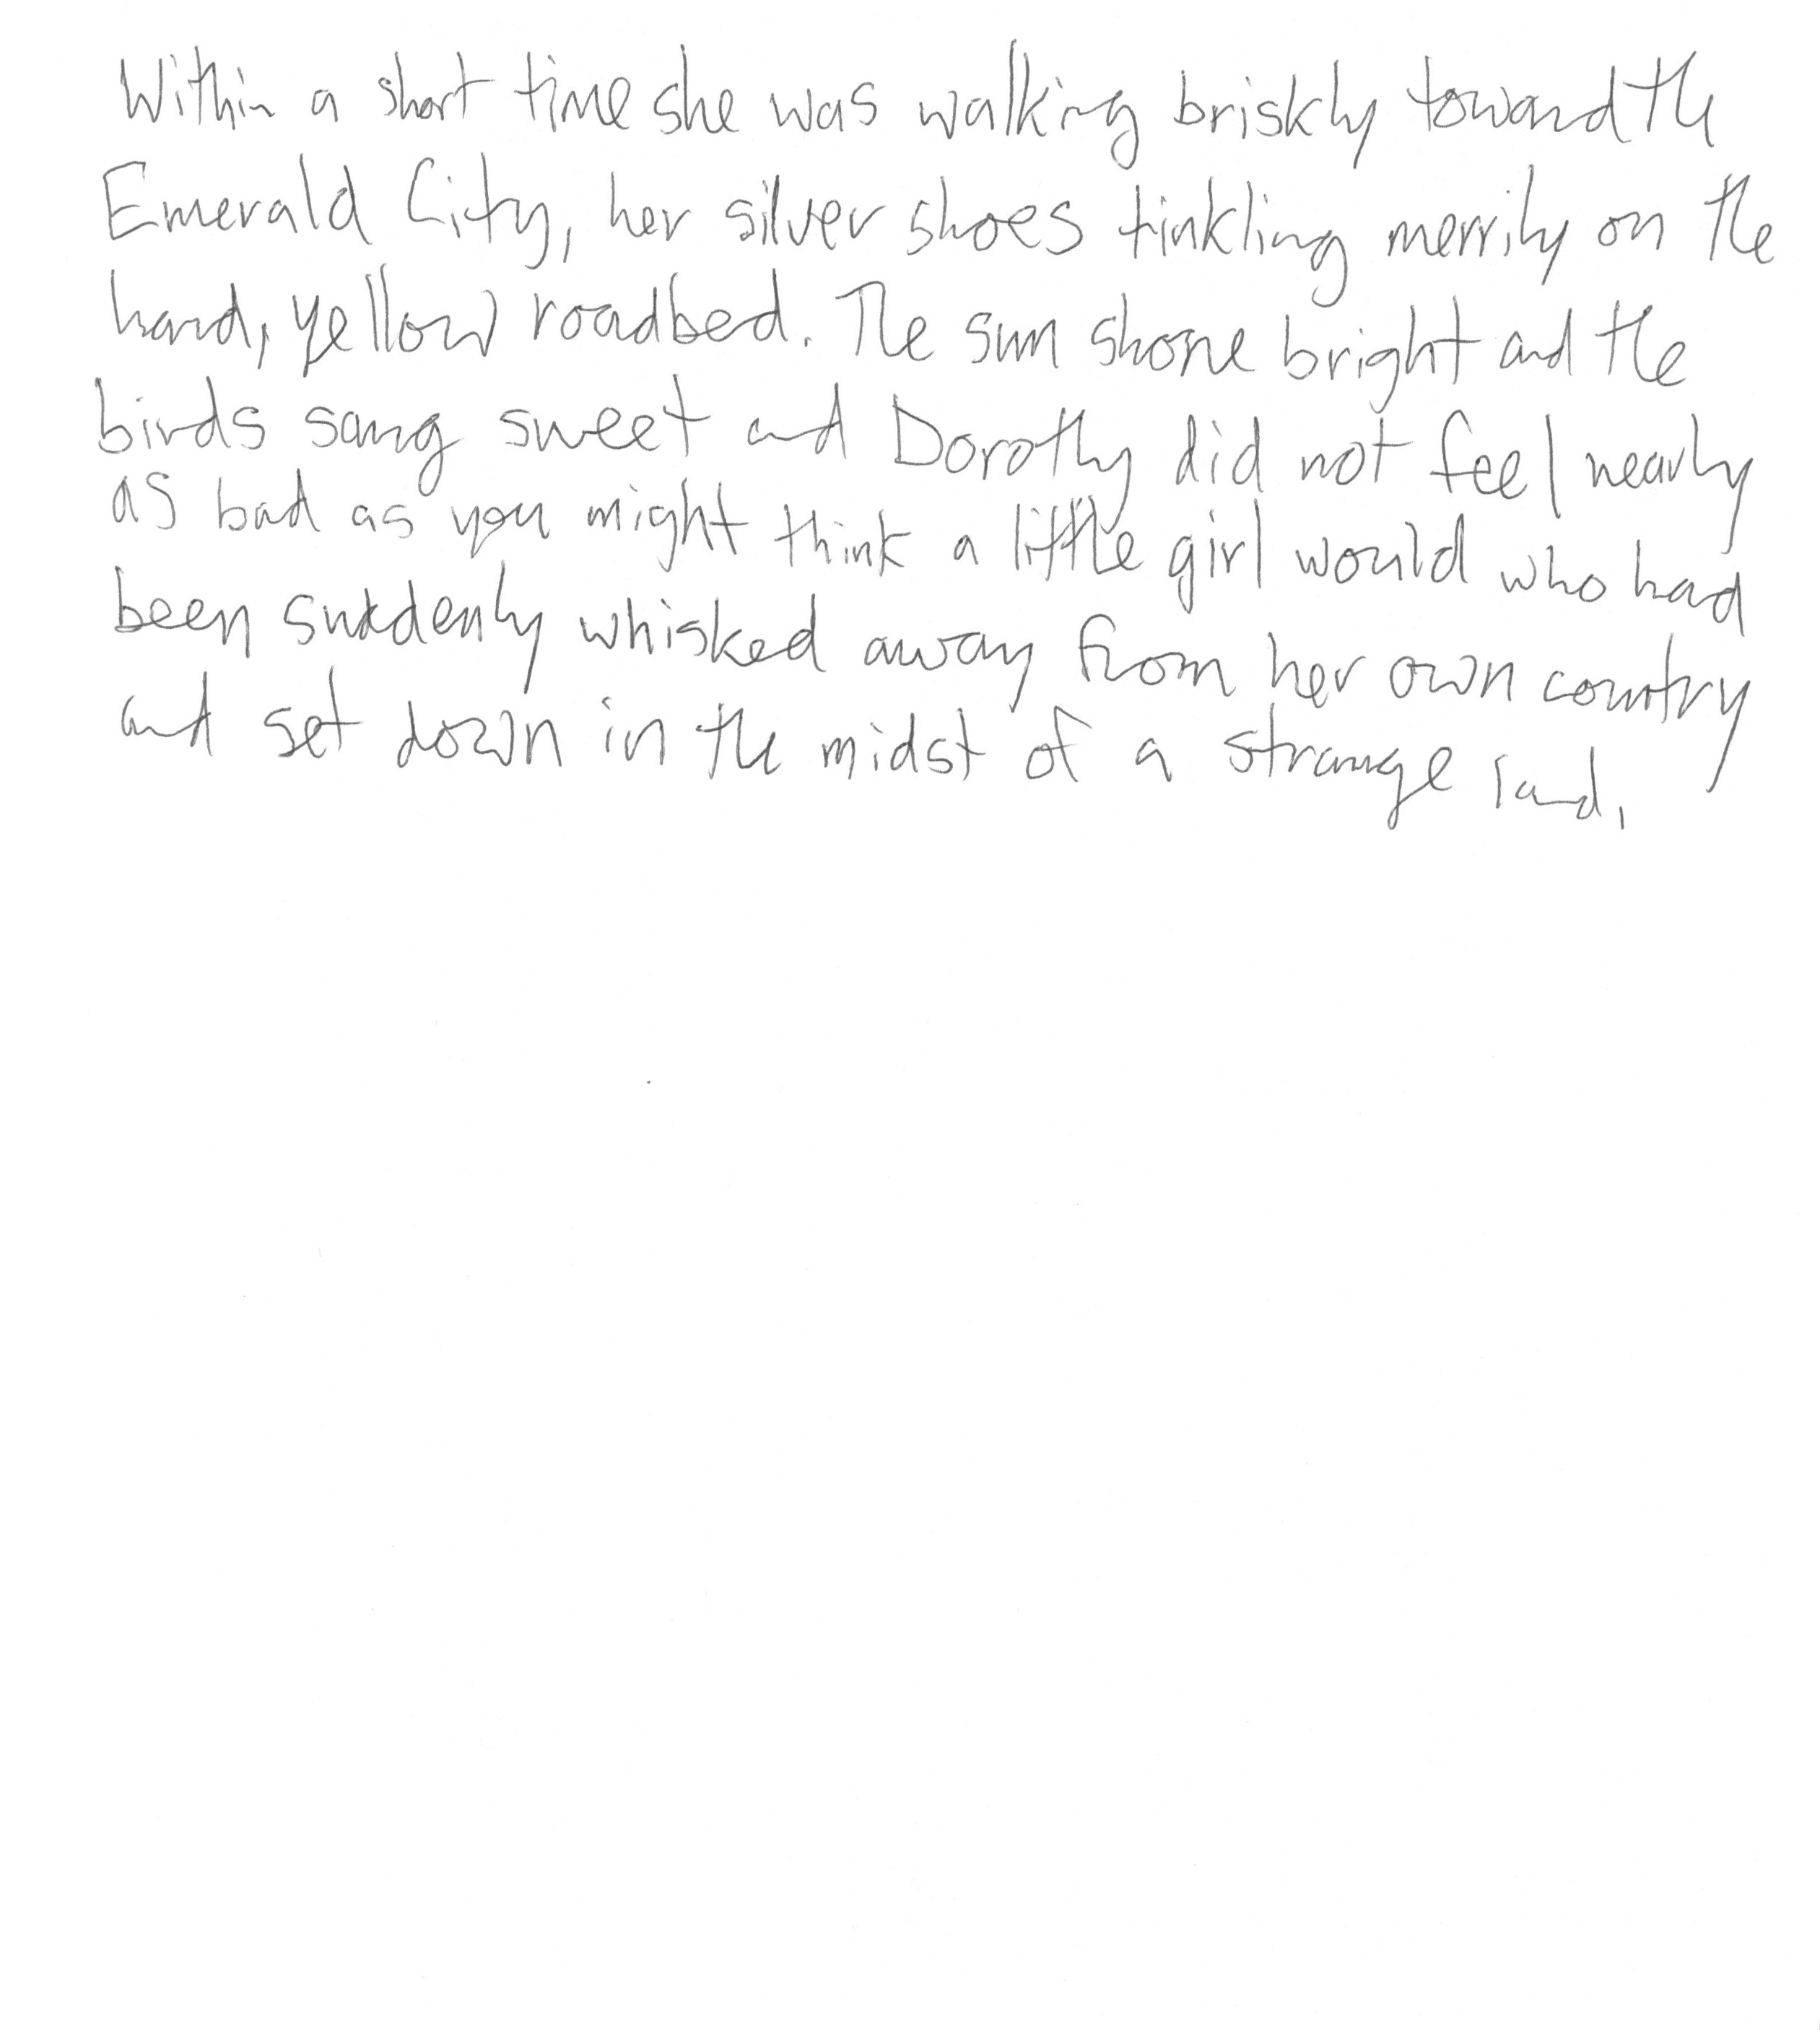 Within a short time she was walking briskly toward the
Emerald City, her silver shoes tinkling merrily on the
hard, yellow roadbed. The sun shone bright and the
birds sang sweet and Dorothy did not feel nearly
as bad as you might think a little girl would who had
been suddenly whisked away from her own country
and set down in the midst of a strange land.